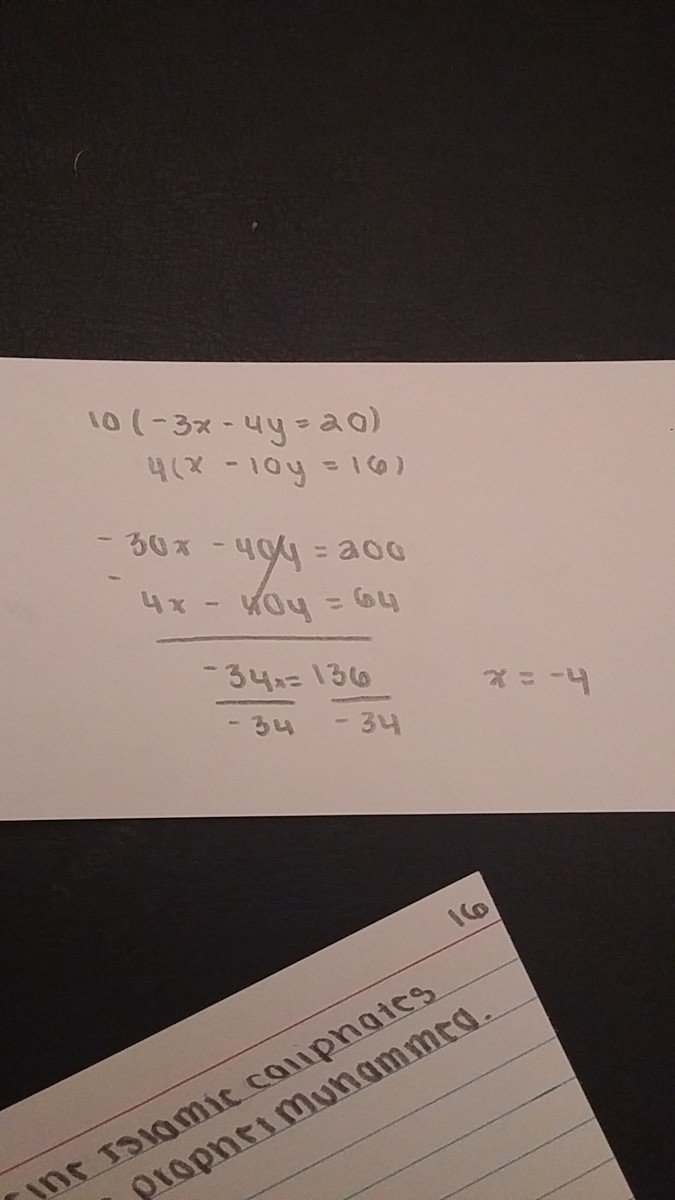 10(-3x - 4y = 20)
4(x - 10y = 16)
- 30x - 40y = 200
-
4x - 40y = 64
-34x = 136
-34 -34
x = -4
16
Islamic caliphates
prophet Muhammed.